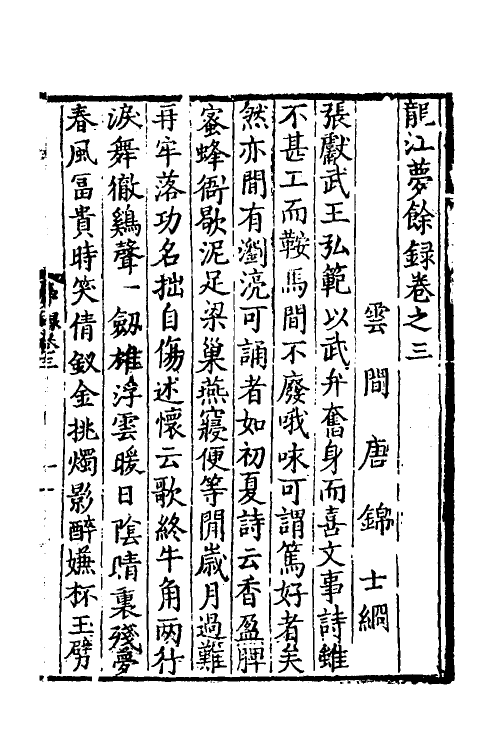 龍江夢餘録卷之三
雲間唐錦士綱
張獻武王弘範以武弁奮身而喜文事詩雖
不甚工而鞍馬間不廢哦咏可謂篤好者矣
然亦間有瀏湸可誦者如初夏詩云香盈脾
蜜蜂衙歇泥足梁巢燕寢便等閒歲月過難
再牢落功名拙自傷述懷云歌終牛角兩行
淚舞徹鷄聲一劔雄浮雲暖日陰晴裏殘夢
春風冨貴時笑倩釵金挑燭影醉嫌杯玉劈